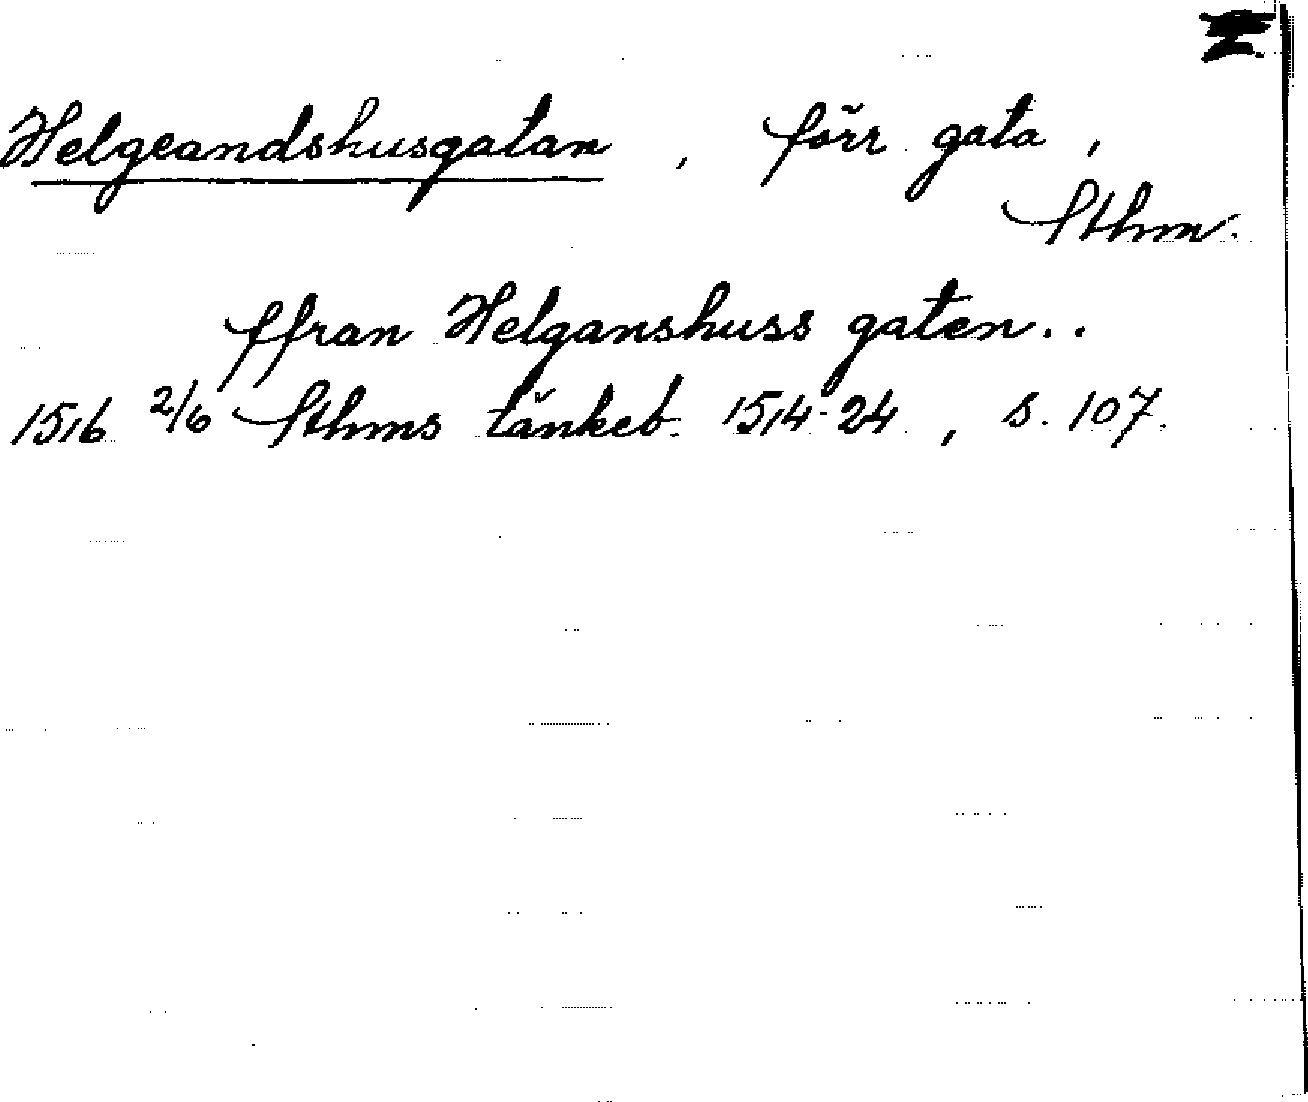 Helgeandshusgatan, förr gata,
Sthm.
ffran Helganshuss gaten..
1516 2/6 Sthms tänkeb. 1514-24, s. 107.